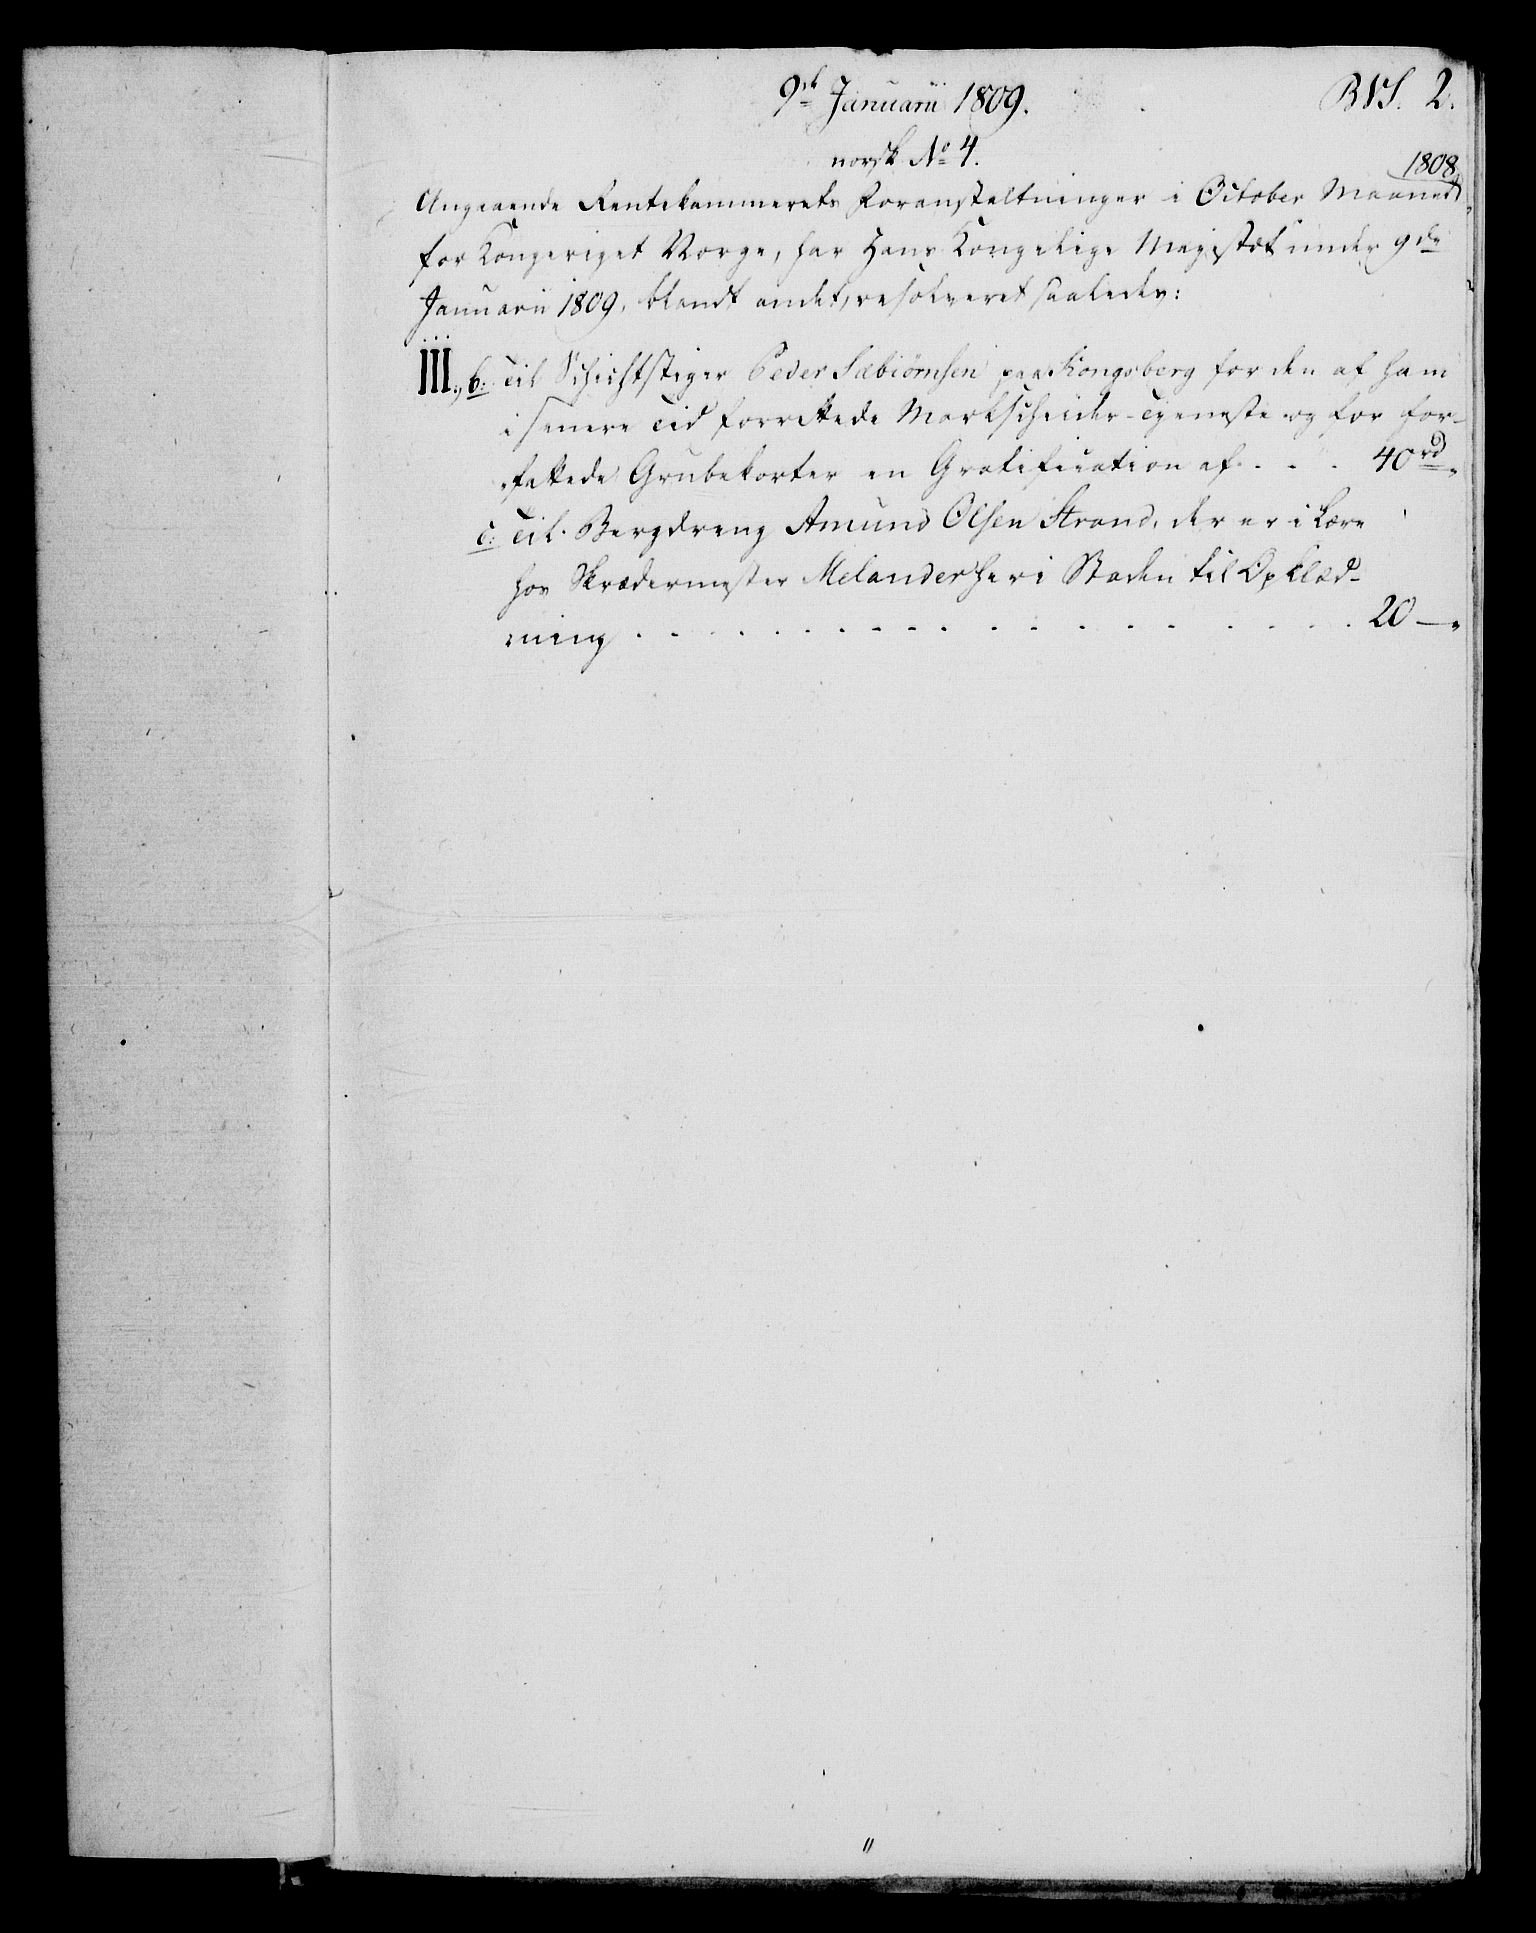 9de Januarii 1809.
RVS. 2.
norsk No 4.
1808
Angaaende Rentekammerets Foranstaltninger i October Maaned
for Kongeriget Norge, har Hans Kongelige Majestæt under 9de
Januarii 1809, blandt andet, resolveret saaledes:
III., b: Til Schichtstiger Peder Sæbiørnsen paa Kongsberg for den af ham
i senere Tid forrettede Markscheider-Tjeneste og for for-
fattede Grubekorter en Gratification af . . . . 40 rd
c: Til Bergdreng Amund Olsen Strand, der er i Lære
hos Skrædermester Melander her i Staden til Opklæd-
ning . . . . . . . . . . . . . . . . . . 20 —